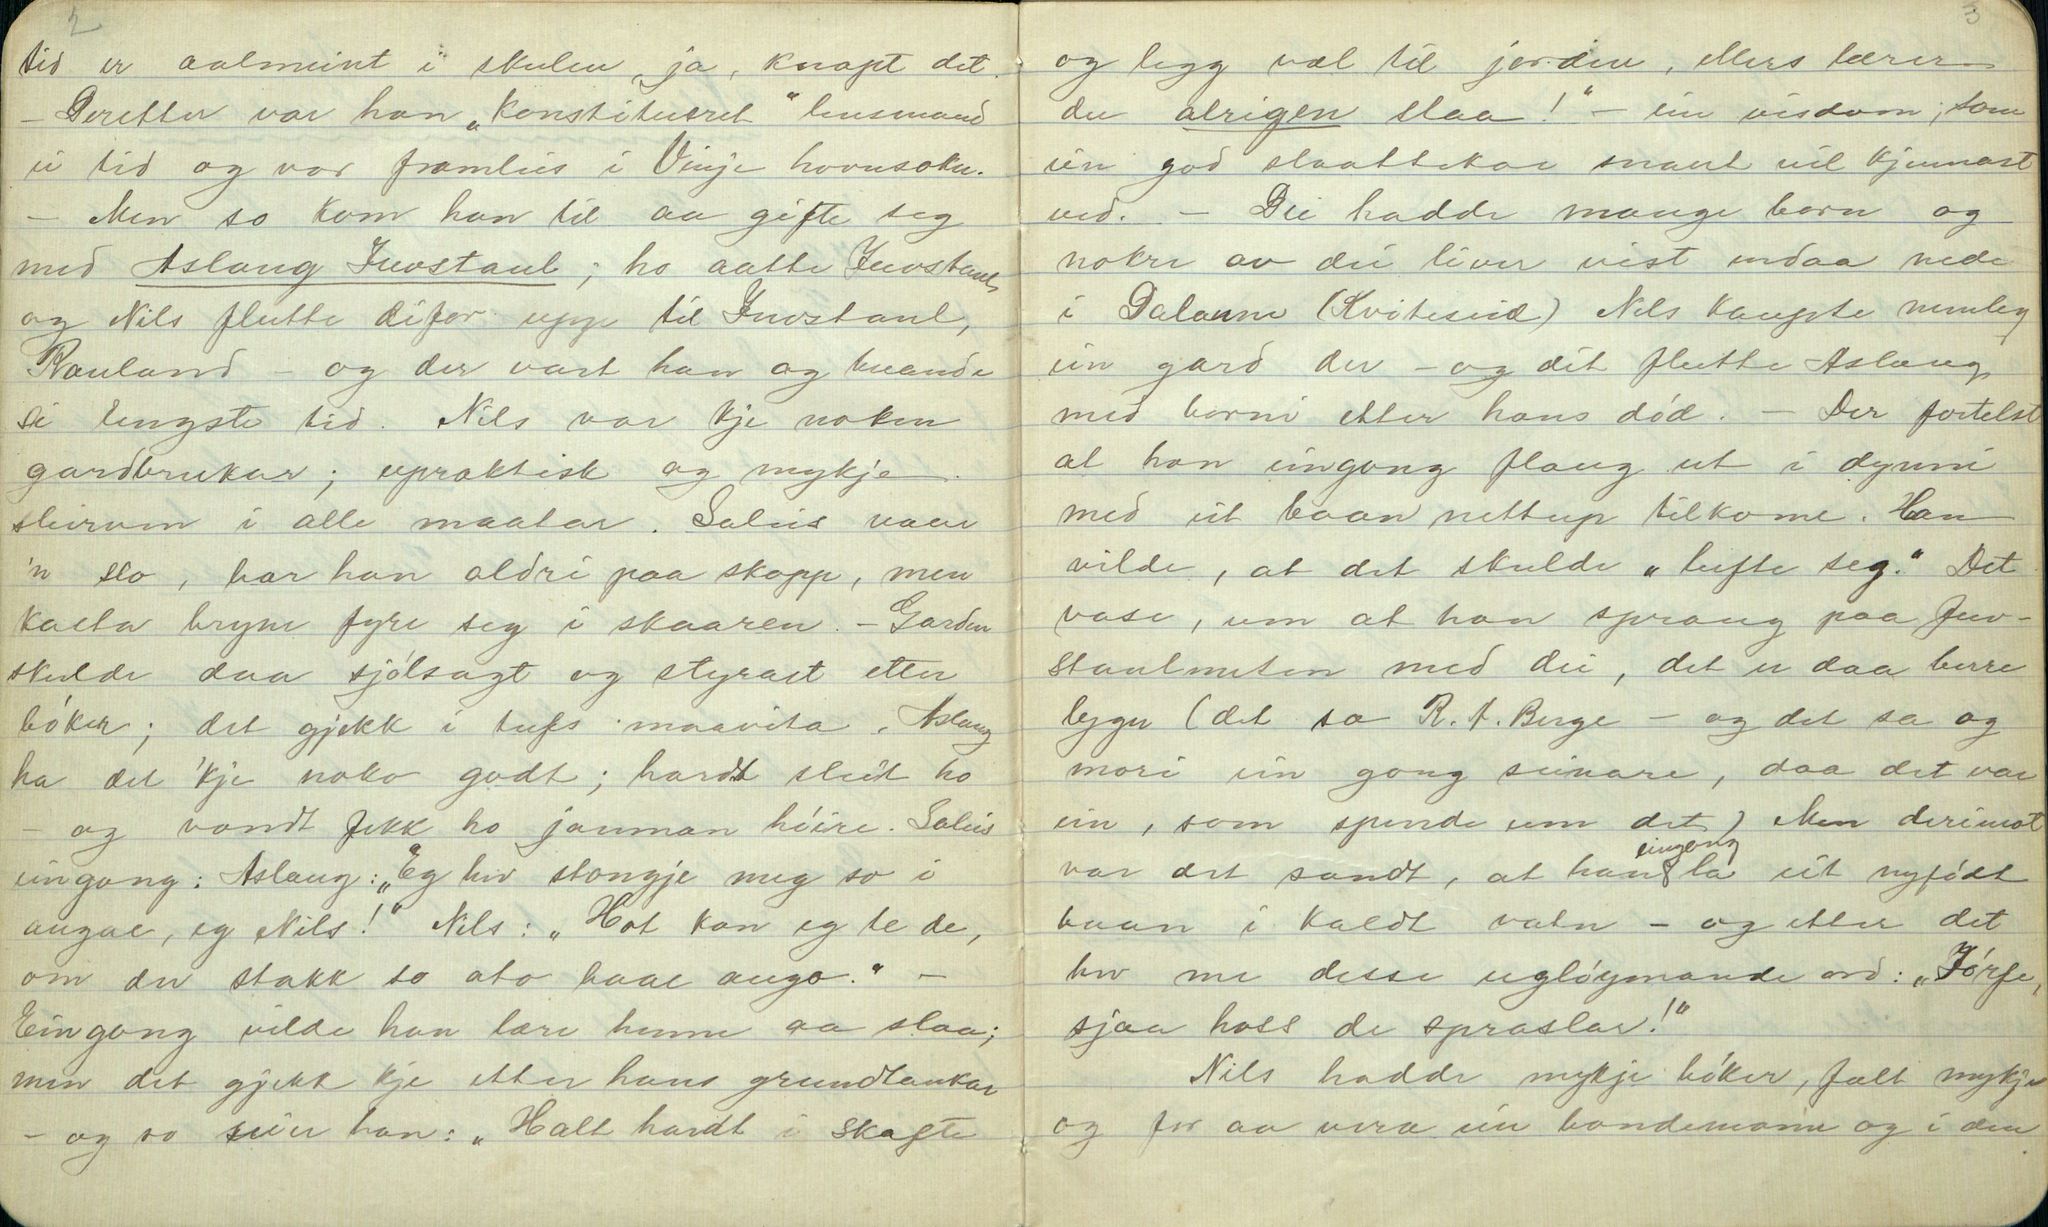 2
tid er aalmeint i skulen, ja, knapt det.
- Deretter var han „konstitueret" lensmand
ei tid og var framleis i Vinje hovusokn.
- Men so kom han til aa gifte seg
med Aslaug Juvstaul; ho aatte Juvstaul,
og Nils flutte difor upp til Juvstaul,
Rauland - og der vart han og buande
si lengste tid. Nils var kje noken
gardbrukar; upraktisk og mykje
sleirven i alle maatar. Soleis naar
'n slo, bar han aldri paa skopp, men
kasta bryne fyre seg i skaaren. - Garden
skulde daa sjólsagt og styrast etter
bóker; det gjekk i tufs maavita. Aslaug
ha det 'kje noko godt; hardt sleit ho
- og vondt fekk ho jamnan hóire. Soleis
eingong: Aslaug: „Eg hev stongje meg so i
augae, eg Nils!" Nils: „Hot kan eg te de,
om du stakk to ato baae augo." -
Eingong vilde han lære henne aa slaa;
men det gjekk kje etter hans grundtankar
- og so seier han: „Halt hardt i skafte
3
og legg væl til jorden, ellers lærer
du alrigen slaa!" - ein visdom, som
ein god slaattekar snart vil kjennast
ved. - Dei hadde mange born og
nokre av dei liver vist endaa nede
i Dalanne (Kviteseid) Nils kaupte nemleg
ein gard der - og dit flutte Aslaug
med borni etter hans død. - Der fortelst
at han eingong flaug ut i dynni
med eit baan nettupp tilkome. Han
vilde, at det skulde „lufte seg." Det
vase, um at han sprang paa Juv-
staulnuten med dei, det er daa berre
lygn (det sa R. A. Berge - og det sa og
mori ein gong seinare, daa det var
ein, som spurde um det) Men derimot
var det sandt, at han eingong la eit nyfødt
baan i kaldt vatn - og etter det
hev me desse ugløymande ord: „Jórse,
sjaa hoss de spraslar!"
Nils hadde mykje bóker, fælt mykje
og for aa vera ein bondemann og i den